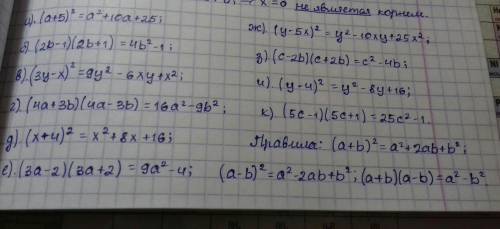 x=0 не является корнем.
а).(a+5)² = a²+10a+25;
б).(2b-1)(2b+1)=4b²-1;
в).(3y-x)²=9y²-6xy+x²;
г).(4a+3b)(4a-3b)=16a²-9b²;
д).(x+4)²=x²+8x+16;
е).(3a-2)(3a+2)=9a²-4;
ж).(y-5x)²=y²-10xy+25x²;
з).(c-2b)(c+2b)=c²-4b;
и).(y-4)²=y²-8y+16;
к).(5c-1)(5c+1)=25c²-1.
Правила: (a+b)²=a²+2ab+b²;
(a-b)²=a²-2ab+b²;(a+b)(a-b)=a²-b².